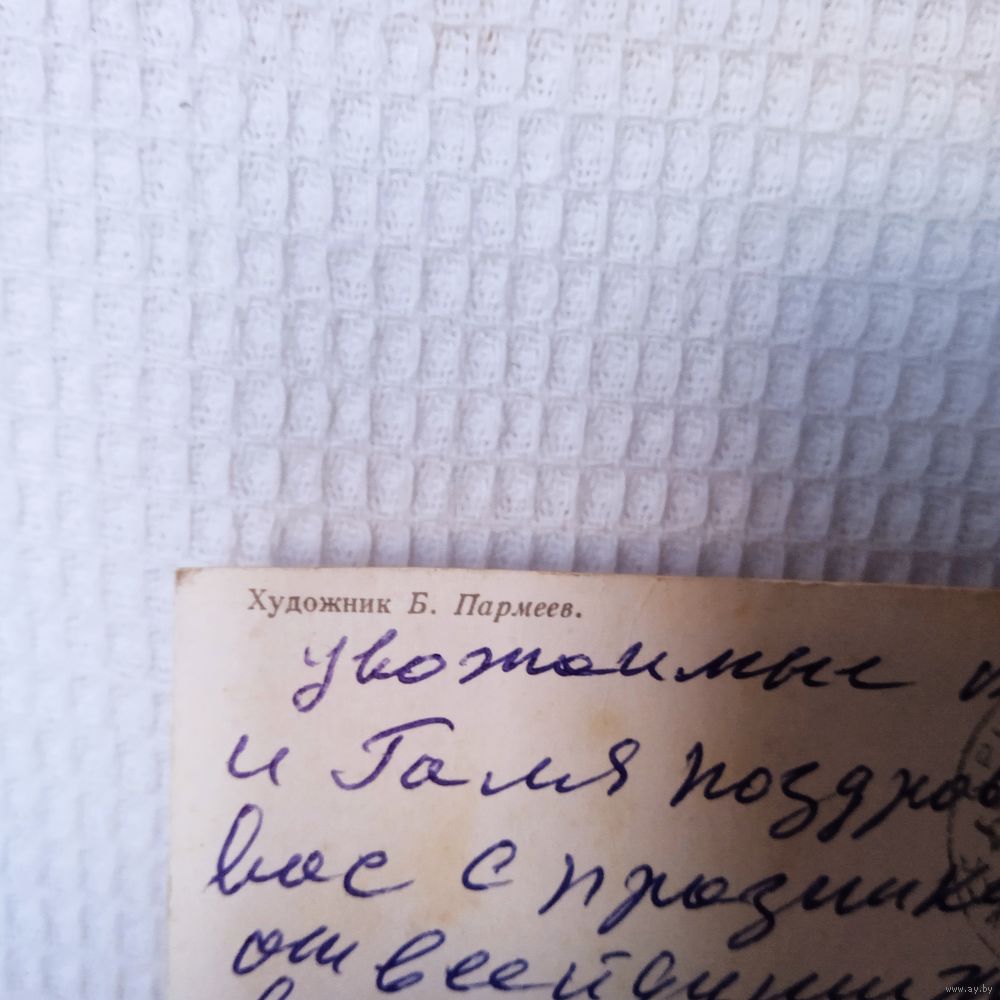 Художник Б. Пармеев.
уважаимые
и Галя поздрав
вас с празник
от всей
www.ay.by